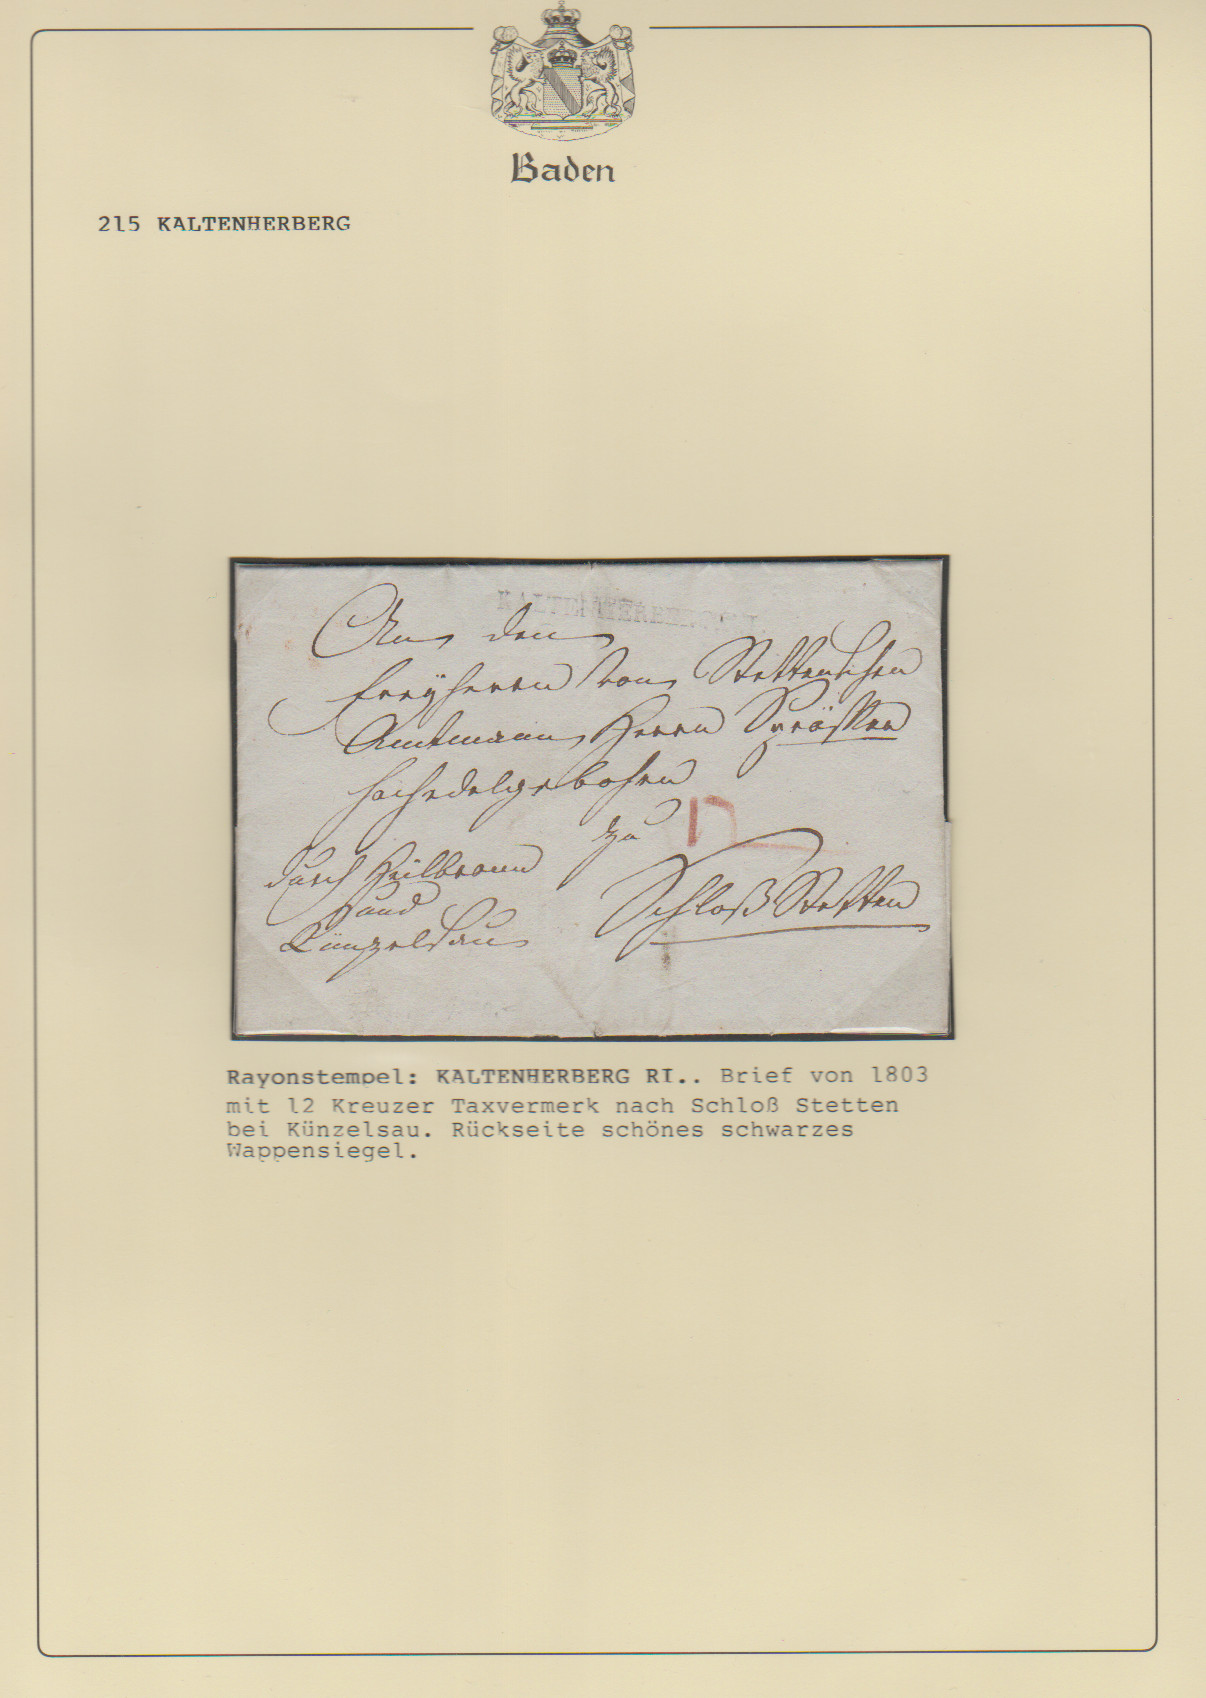 Baden
215 KALTENHERBERG
KALTENHERBERG. R. I.
An den
Freyherrn von Stettenschen
Amtmann, Herrn
hochedelgebohren
zu
12
durch Heilbronn
und
Künzelsau
Schloß Stetten
Rayonstempel: KALTENHERBERG RI.. Brief von 1803
mit 12 Kreuzer Taxvermerk nach Schloß Stetten
bei Künzelsau. Rückseite schönes schwarzes
Wappensiegel.